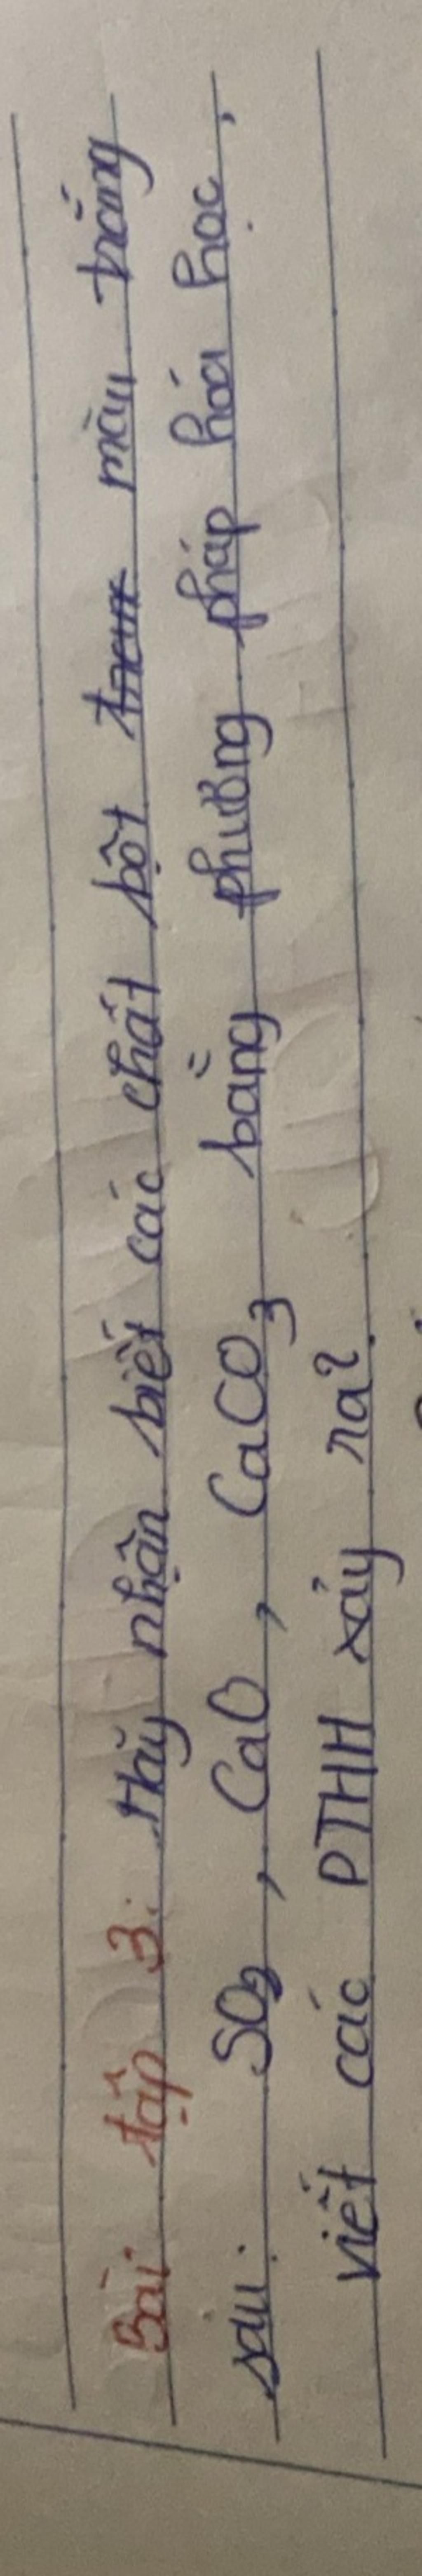 Bài tập 3: Hãy nhận biết các chất bột màu trắng
sau: SO2, CaO, CaCO3 bằng phương pháp hóa học,
viết các PTHH xảy ra?